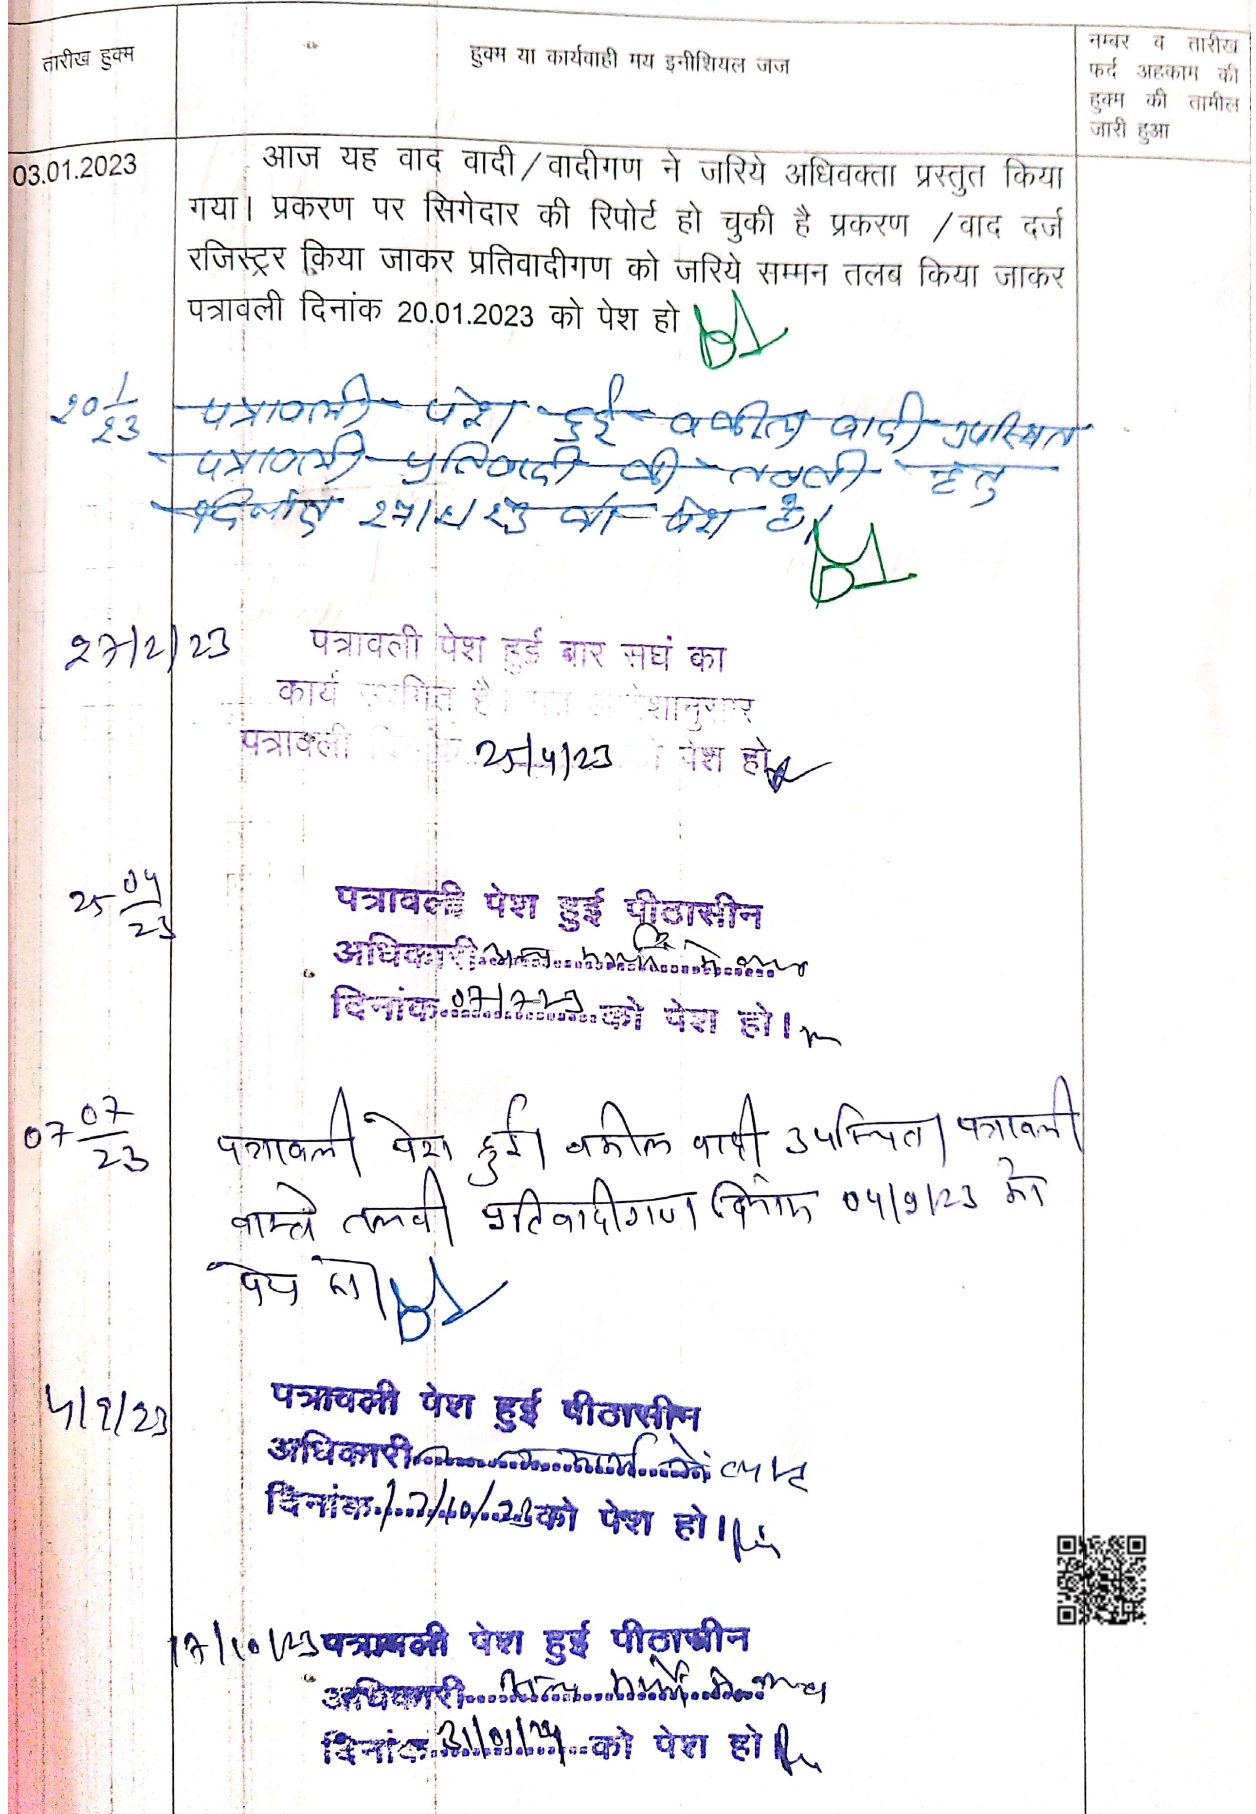 तारीख हुक्म
हुक्म या कार्यवाही मय इनीशियल जज
नम्बर व तारीख
फर्द अहकाम की
हुक्म की तामील
जारी हुआ
03.01.2023
आज यह वाद वादी/वादीगण ने जरिये अधिवक्ता प्रस्तुत किया
गया। प्रकरण पर सिगेदार की रिपोर्ट हो चुकी है प्रकरण /वाद दर्ज
रजिस्ट्रर किया जाकर प्रतिवादीगण को जरिये सम्मन तलब किया जाकर
पत्रावली दिनांक 20.01.2023 को पेश हो
20 1/23
पत्रावली पेश हुई वकील वादी उपस्थित
पत्रावली प्रतिवादी की तलबी हेतु
दिनांक 27/2/23 को पेश हो।
27/2/23
पत्रावली पेश हुई बार सघं का
कार्य स्थगित है। अत आदेशानुसार
पत्रावली दिनांक 25/4/23 को पेश हो
25 04/23
पत्रावली पेश हुई पीठासीन
अधिकारी अन्य कार्य में व्यस्त
दिनांक 07/7/23 को पेश हो।
07 07/23
पत्रावली पेश हुई। वकील वादी उपस्थित। पत्रावली
वास्ते तलबी प्रतिवादीगण दिनांक 04/9/23 को
पेश हो।
4/9/23
पत्रावली पेश हुई पीठासीन
अधिकारी कार्य में व्यस्त
दिनांक 17/10/23 को पेश हो।
17/10/23
पत्रावली पेश हुई पीठासीन
अधिकारी अन्य कार्य में व्यस्त
दिनांक 31/01/24 को पेश हो